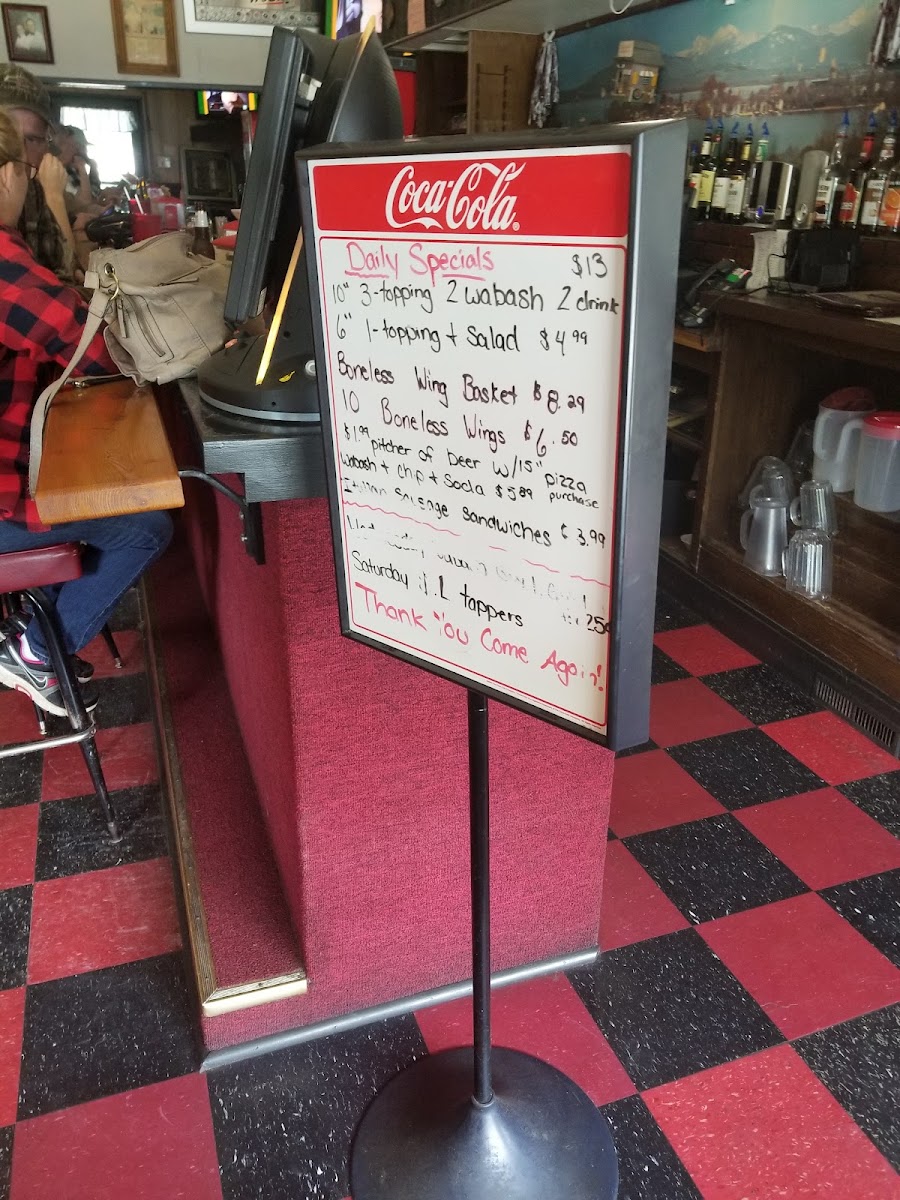 Coca-Cola
Daily Specials $13
10" 3-topping 2 wabash 2 drink
6" 1-topping + Salad $4.99
Boneless Wing Basket $8.29
10 Boneless Wings $6.50
$1.99 pitcher of beer w/15" pizza purchase
Wabash + chp + Soda $5.89
Sandwiches 3.99
Saturday tappers 25¢
Thank You Come Again!